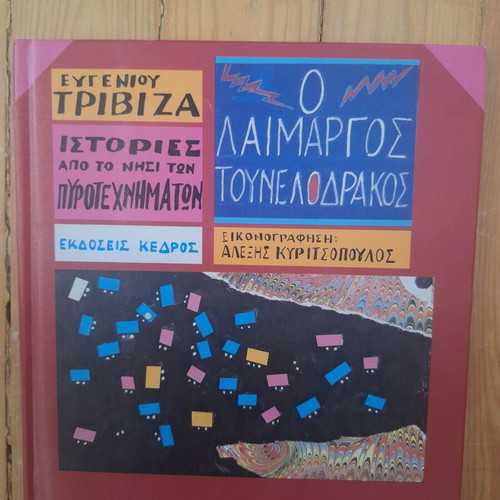 ΕΥΓΕΝΙΟΥ
ΤΡΙΒΙΖΑ
ΙΣΤΟΡΙΕΣ
ΑΠΟ ΤΟ ΝΗΣΙ ΤΩΝ
ΠΥΡΟΤΕΧΝΗΜΑΤΩΝ
ΕΚΔΟΣΕΙΣ ΚΕΔΡΟΣ
Ο
ΛΑΙΜΑΡΓΟΣ
ΤΟΥΝΕΛΟΔΡΑΚΟΣ
ΕΙΚΟΝΟΓΡΑΦΗΣΗ:
ΑΛΕΞΗΣ ΚΥΡΙΤΣΟΠΟΥΛΟΣ